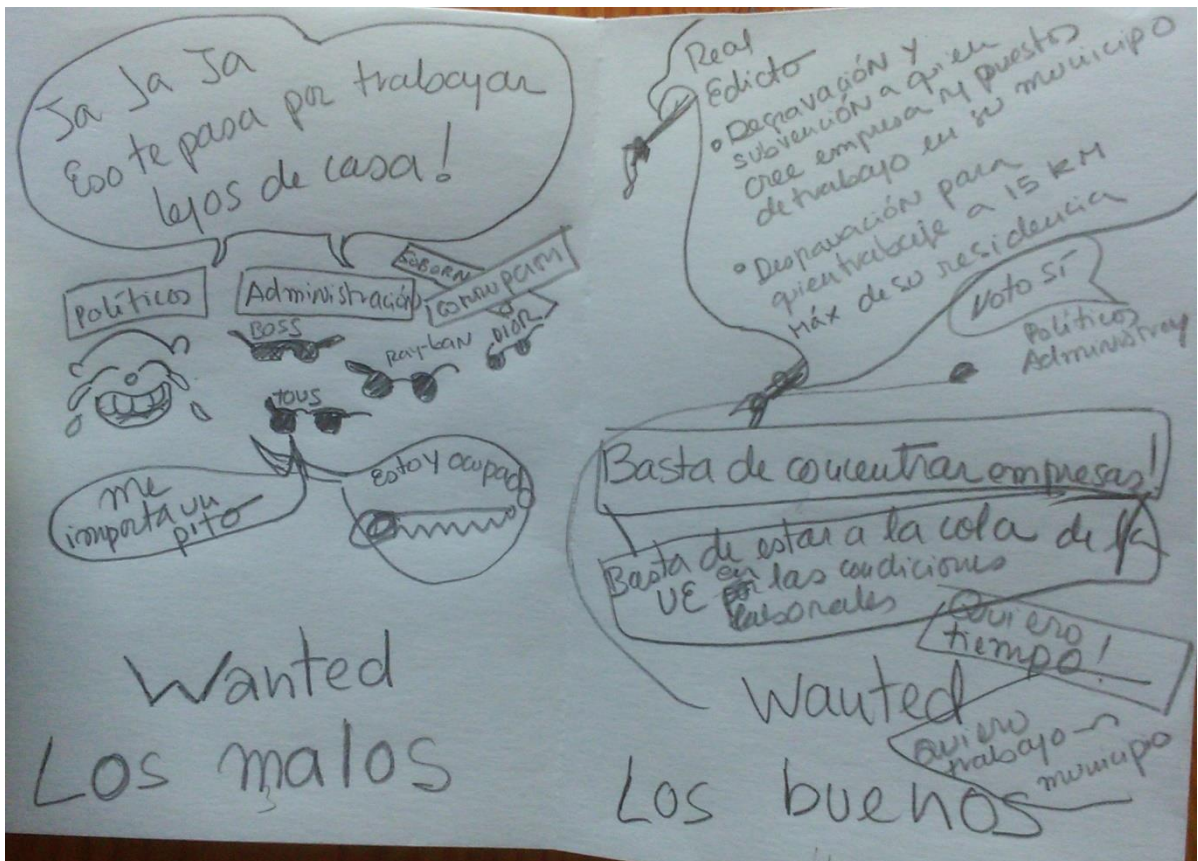 Ja Ja Ja
Eso te pasa por trabajar
lejos de casa!
Políticos
Administración
SOBORN
corrupam
BOSS
Ray-ban
DIOR
TOUS
me
importa un
pito
Estoy ocupado
Wanted
Los malos
Real
Edicto
• Degravación y
subvención a quien
cree empresa y puestos
de trabajo en su municipio
• Desgravación para
quien trabaje a 15 KM
Máx de su residencia
Voto sí
Políticos
Administraç
Basta de concentrar empresas!
Basta de estar a la cola de la
UE en las condiciones
laborales
Quiero
tiempo!
Wanted
Quiero
trabajo
municipio
Los buenos